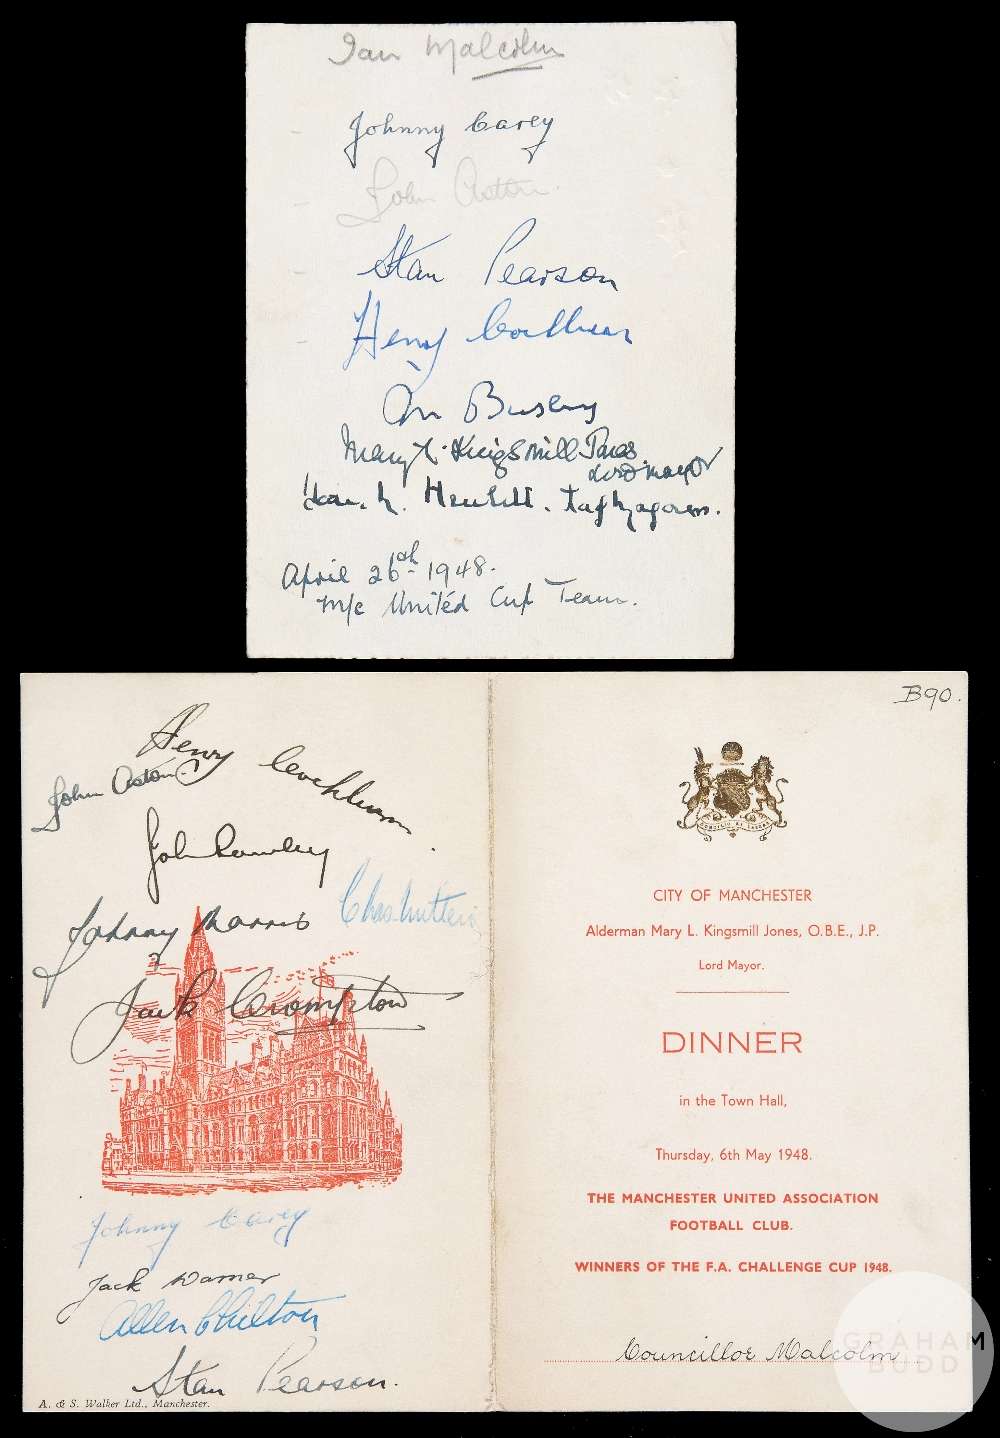 Ian Malcolm
Johnny Carey
John Aston.
Stan Pearson
Henry Cockburn
Busby
Mary L. Kingsmill Jones
Lord Mayor
April 26th 1948.
M/c United Cup Team.
B90.
Henry Cockburn
John Aston
John Rowley
Chas Mitten
Johnny Morris
Jack Crompton
Johnny Carey
Jack Warner
Allen Chilton
Stan Pearson.
A. & S. Walker Ltd., Manchester.
CONCILIO ET LABORE
CITY OF MANCHESTER
Alderman Mary L. Kingsmill Jones, O.B.E., J.P.
Lord Mayor.
DINNER
in the Town Hall,
Thursday, 6th May 1948.
THE MANCHESTER UNITED ASSOCIATION
FOOTBALL CLUB.
WINNERS OF THE F.A. CHALLENGE CUP 1948.
Councillor Malcolm
GRAHAM
BUDD